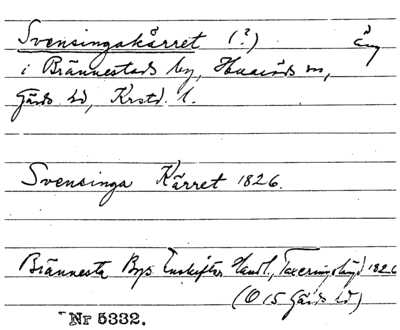 Svensingakärret (?) Äng
i Brännestads by, Huaröds sn,
Gärds hd, Krstd. l.
Svensinga Kärret 1826.
Brännesta Bys Enskiftes Handl., Taxeringslängd 1826
(O 15 Gärds hd)
Nr 5332.